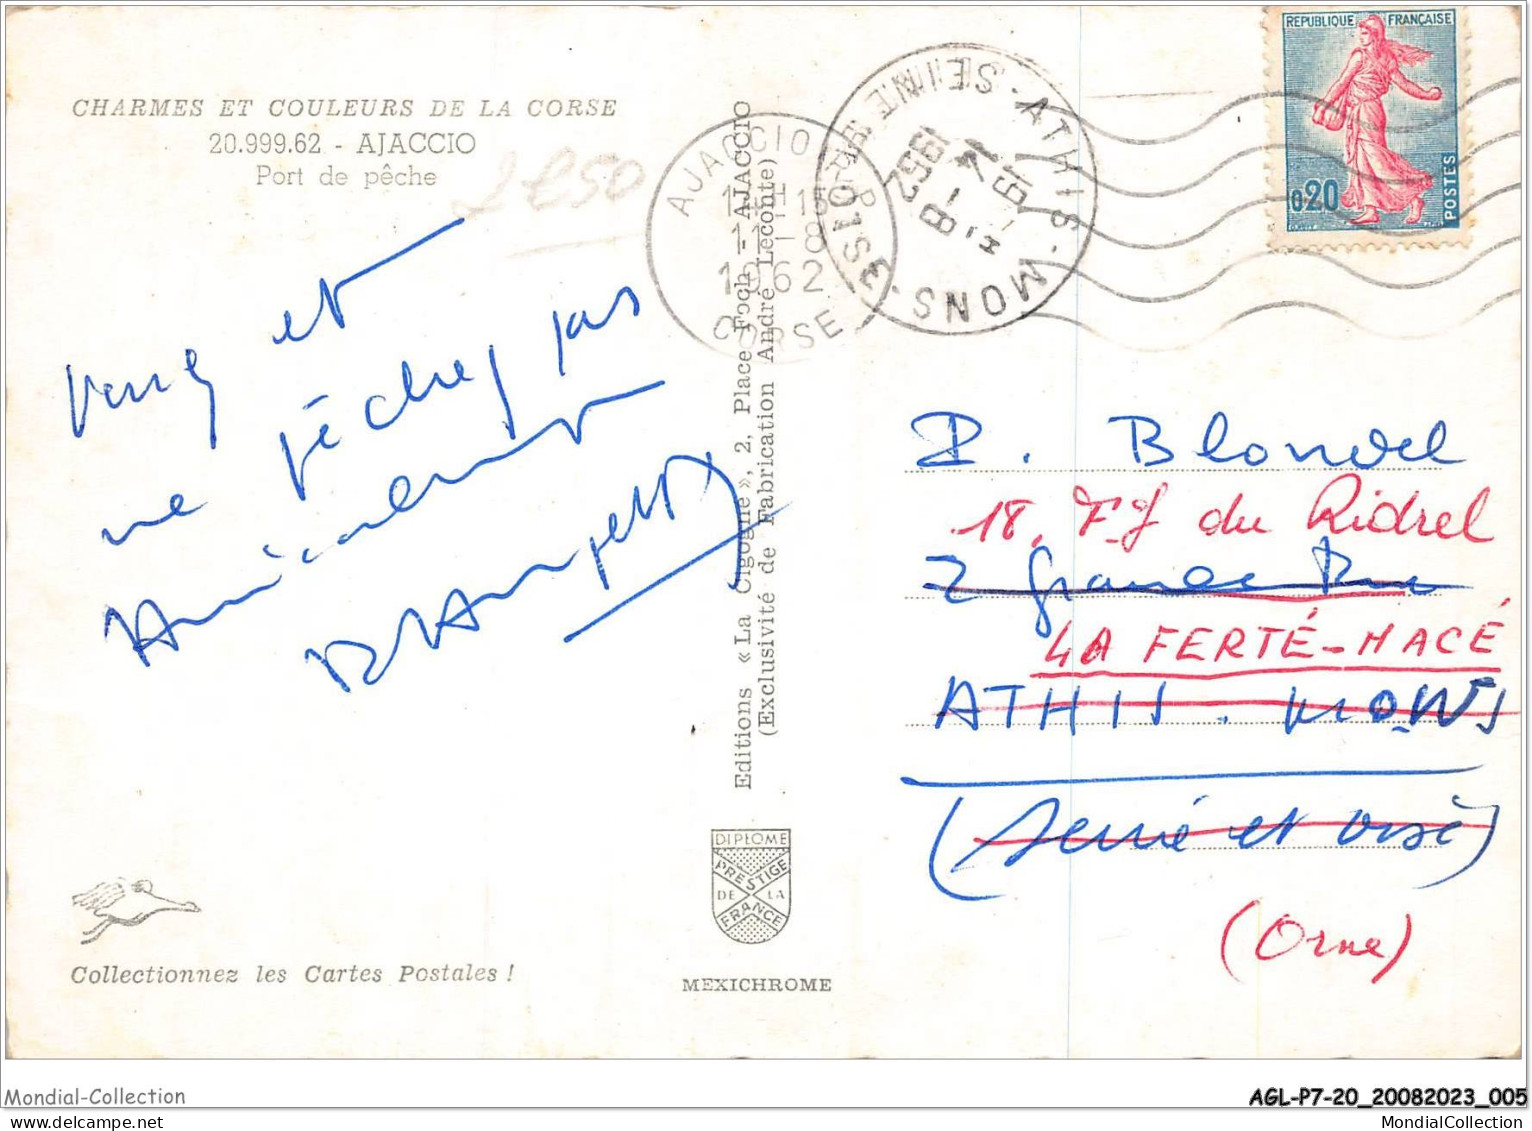 CHARMES ET COULEURS DE LA CORSE
20.999.62 - AJACCIO
Port de pêche
2 E50
Venez et
ne pêchez pas
Amicalement
Editions « La Cigogne », 2, Place Foch - AJACCIO
(Exclusivité de Fabrication André Leconte)
AJACCIO
1962
CORSE
ATHIS-MONS
SEINE ET OISE
REPUBLIQUE FRANÇAISE
0,20
POSTES
Blondel
18, du Ridrel
2 grande Rue
LA FERTÉ-MACÉ
ATHIS. MONS
(Seine et Oise)
(Orne)
DIPLOME
PRESTIGE
DE LA
FRANCE
MEXICHROME
Collectionnez les Cartes Postales !
Mondial-Collection
AGL-P7-20_20082023_005
MondialCollection